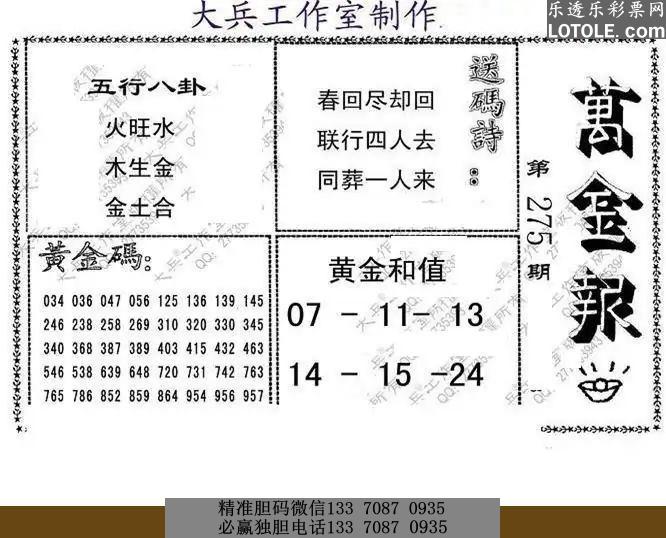 大兵工作室制作.
乐透乐彩票网
LOTOLE.COM
五行八卦
火旺水
木生金
金土合
送碼詩:
春回尽却回
联行四人去
同葬一人来
萬金報
第275期
黃金碼:
034 036 047 056 125 136 139 145
246 238 258 269 310 320 330 345
340 368 387 389 403 415 432 463
546 538 639 648 720 731 742 763
765 786 852 859 864 954 956 957
黄金和值
07 - 11- 13
14 - 15 -24
精准胆码微信133 7087 0935
必赢独胆电话133 7087 0935